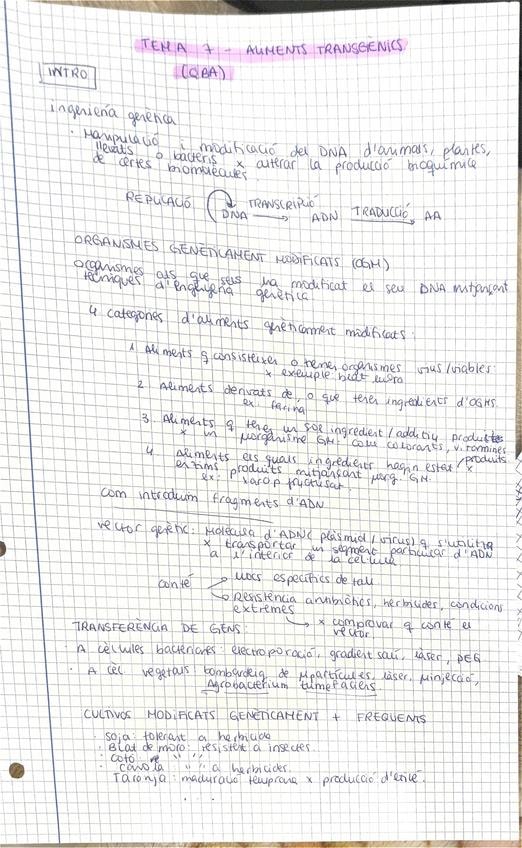 TEMA 7 - ALIMENTS TRANSGÈNICS
(QBA)
INTRO
ingenieria genètica
· Manipulació i modificació del DNA d'animals, plantes,
llevats o bacteris x alterar la producció bioquímica
de certes biomolècules
REPLICACIÓ DNA TRANSCRIPCIÓ → ADN TRADUCCIÓ → AA
ORGANISMES GENÈTICAMENT MODIFICATS (OGM)
Organismes als que se'ls ha modificat el seu DNA mitjançant
tècniques d'enginyeria genètica
4 categories d'aliments genèticament modificats:
1. Aliments q consisteixen o tenen organismes vius/viables:
x exemple: blat
2. Aliments derivats de, o que tenen ingredients d'OGMs.
ex: farina
3. Aliments q tenen un sol ingredient / additiu produïts
x un µorganisme GM. com colorants, vitamines
4. Aliments els quals ingredients hagin estat / produïts x
enzims produïts mitjançant µorg. GM.
ex: xarop fructosat
Com introduim fragments d'ADN
vector genètic: Molècula d'ADN (plasmid / virus) q s'utilitza
x transportar un segment particular d'ADN
a l'interior de la cèl·lula
conté → llocs específics de tall
→ Resistència antibiòtics, herbicides, condicions
extremes → x comprovar q conté el
vector
TRANSFERÈNCIA DE GENS:
· A cèl·lules bacterianes: electroporació, gradient salí, làser, PEG
· A cèl vegetals bombardeig de µpartícules, làser, µinjecció,
Agrobacterium tumefaciens
CULTIVOS MODIFICATS GENÈTICAMENT + FREQUENTS
· Soja: tolerant a herbicida
· Blat de moro: resistent a insectes.
· Cotó " " "
· Canola " " a herbicides.
Taronja: maduració temprana x producció d'etilè.